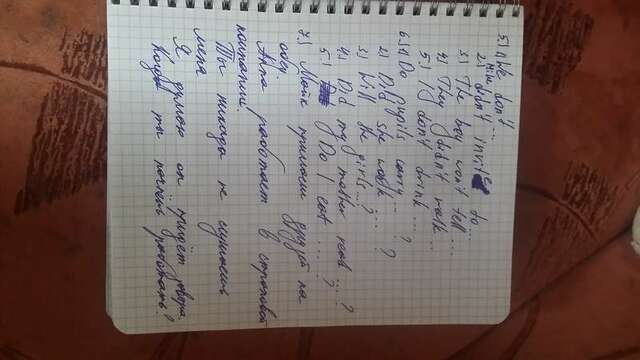 5.) 1) We don't ...
2.) Mike didn't invite to ...
3.) The boy won't tell ...
4.) They didn't walk ..
5.) I don't drink ...
6.) 1) Do pupils carry ... ?
2.) Did she work ... ?
3.) Will the girls ...?
4.) Did my mother reat ... ?
5.) Do I eat ... ?
7.) Майк пригласил друзей на
обед.
Анна работает в страховой
компании.
Ты никогда не слушаешь
меня
Я думаю он придёт завтра.
Когда ты начнёшь работать?